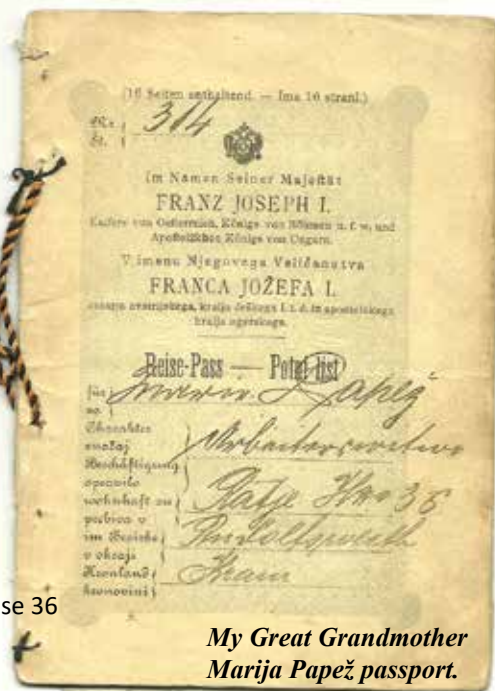 (16 Seiten enthaltend. — Ima 16 strani.)
Nr.
Št.
314
Im Namen Seiner Majestät
FRANZ JOSEPH I.
Kaisers von Oesterreich, Königs von Böhmen u. s. w. und
Apostolischen Königs von Ungarn.
V imenu Njegovega Veličanstva
FRANCA JOŽEFA I.
cesarja avstrijskega, kralja češkega i. t. d. in apostolskega
kralja ogerskega.
Reise-Pass — Potni list
für
za
Papež
Charakter
značaj
Beschäftigung
opravilo
wohnhaft zu
prebiva v
Ratje Hno 36
im Bezirke
v okraji
Rudolfswerth
Kronland
kronovini
Krain
se 36
My Great Grandmother
Marija Papež passport.